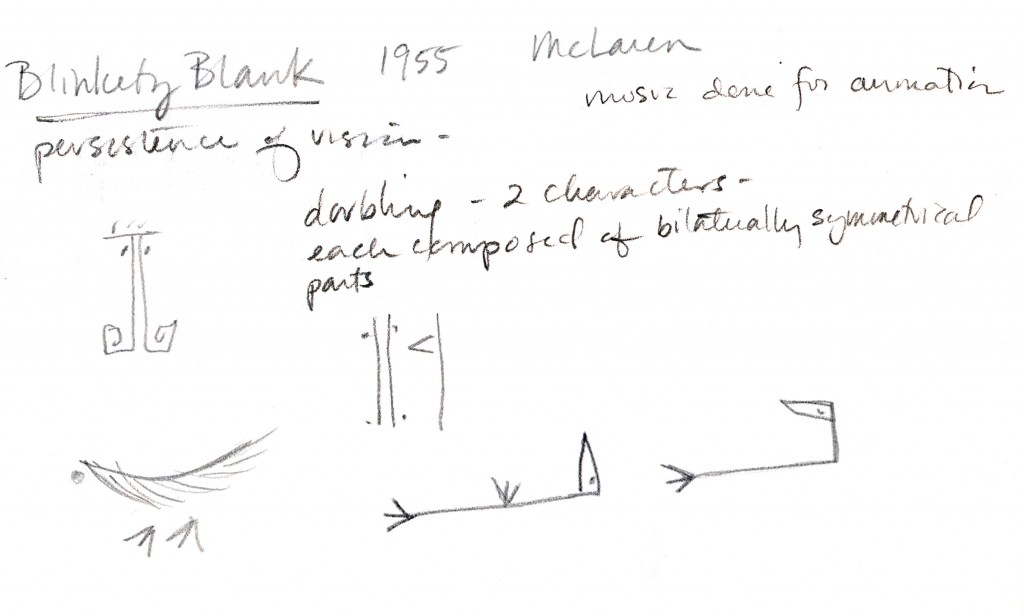 Blinkety Blank 1955 McLaren
music done for animation
persistence of vision -
doubling - 2 characters -
each composed of bilaterally symmetrical
parts